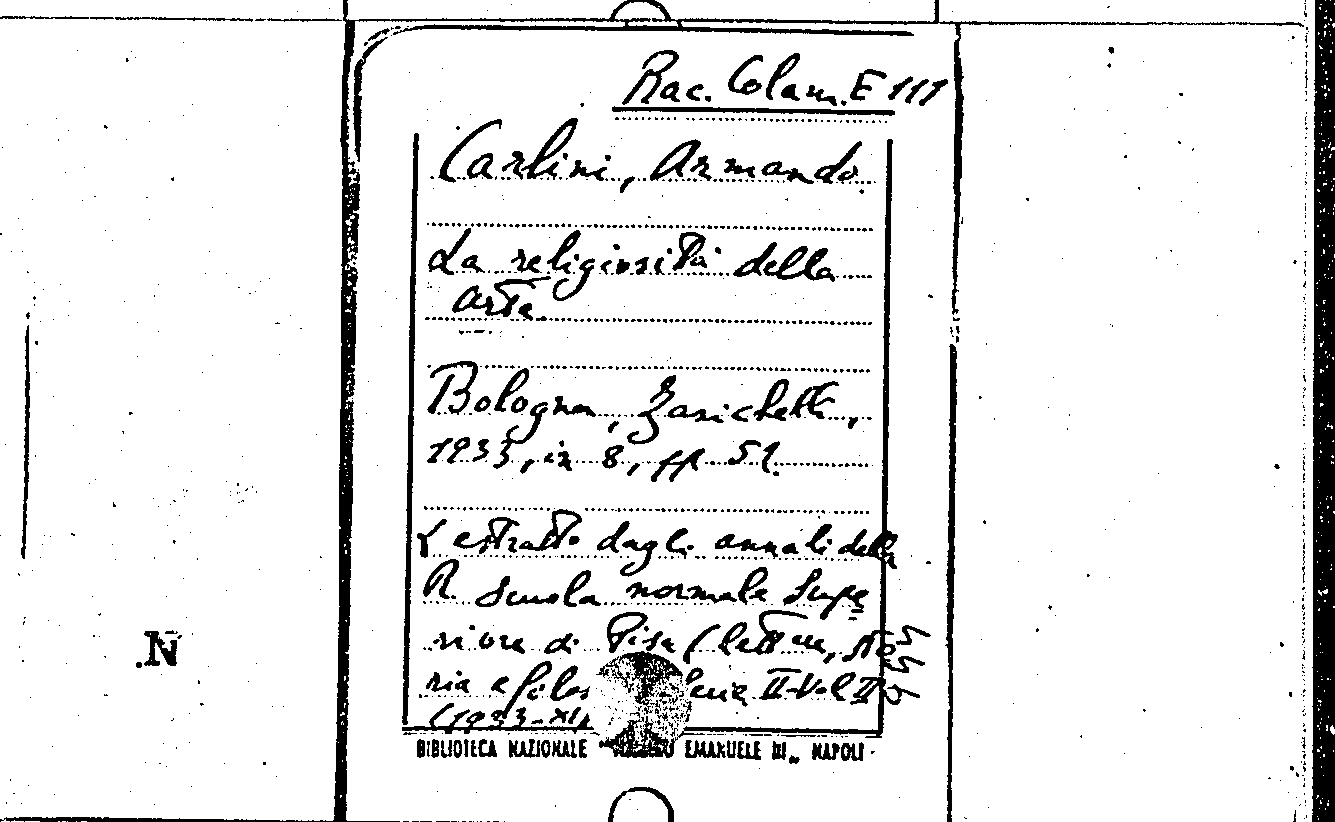 Rac. Colam. E 111
Carlini, Armando
La religiosità della
arte.
Bologna, Zanichelli,
1933, in 8, pp 51.
estratto dagli annali della
R. Scuola normale Supe
riore di Pisa (lettere, sto
ria e filos serie II-Vol II
(1933-XI)
BIBLIOTECA NAZIONALE EMANUELE III„ NAPOLI
N